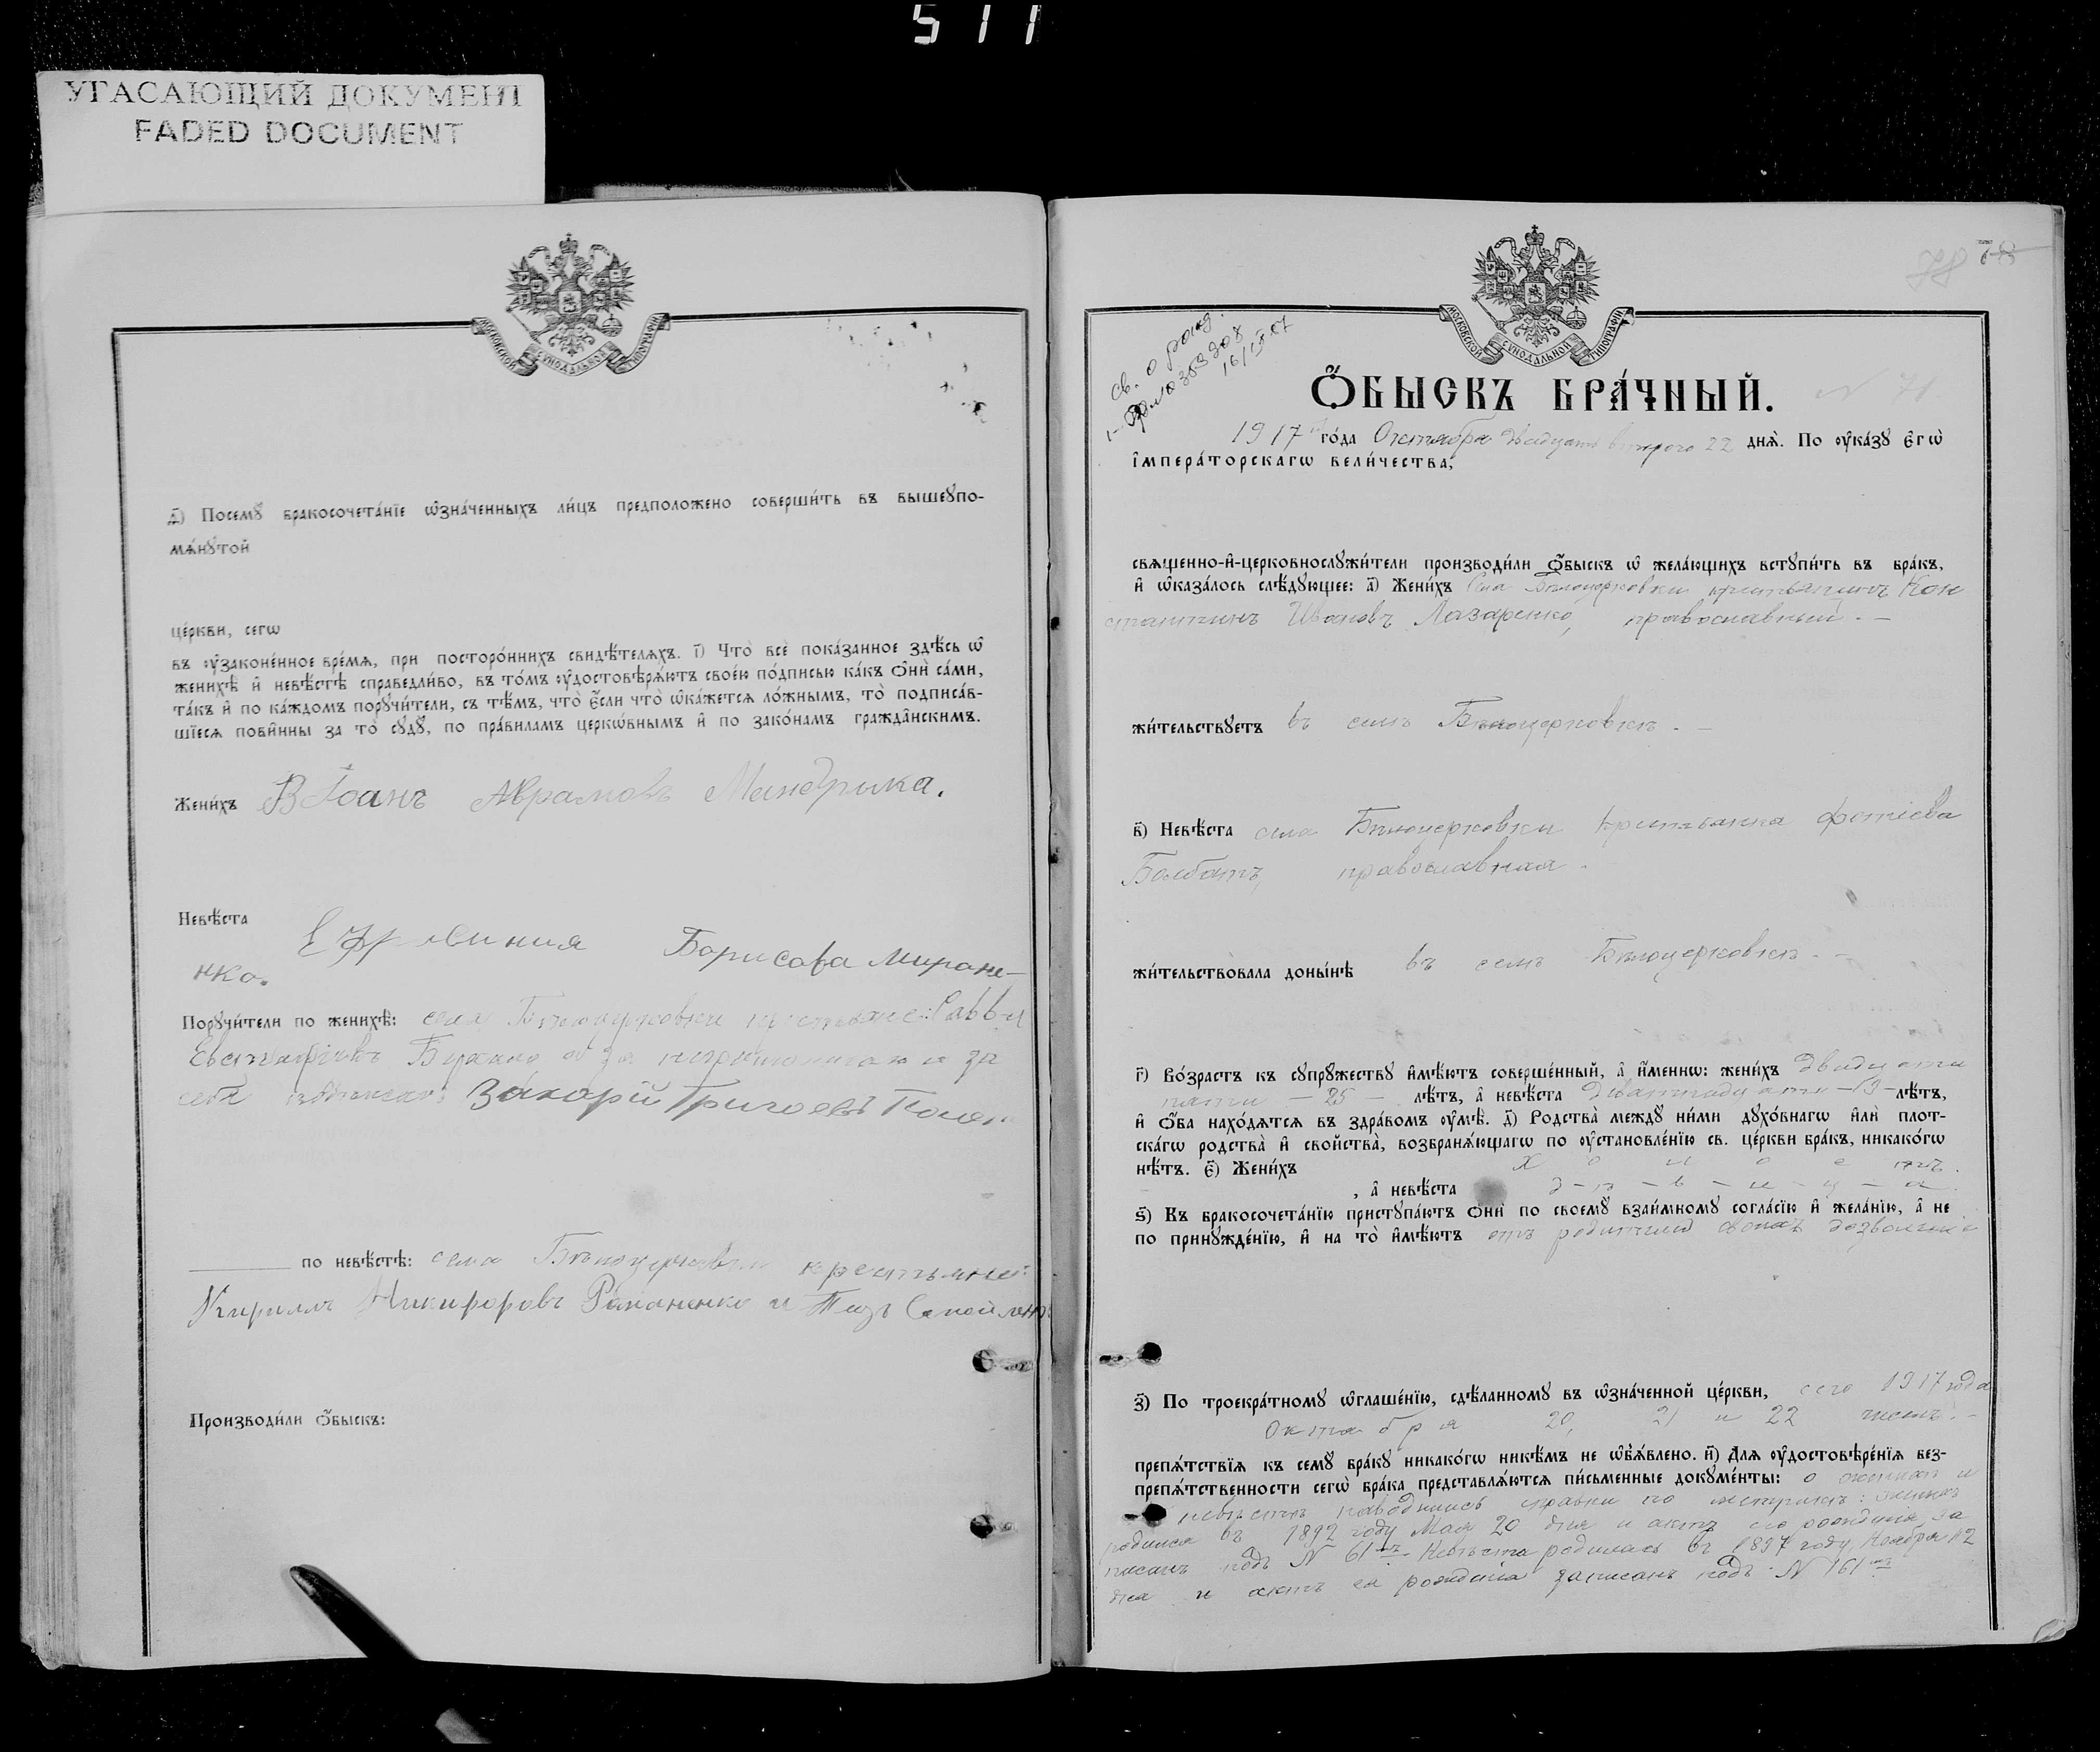 511
УГАСАЮЩИЙ ДОКУМЕНТ
FADED DOCUMENT
МОСКОВСКОЙ СѴНОДАЛЬНОЙ ТИПОГРАФІИ
д҃) Посемꙋ̀ бракосочета́нїе ѡ҆зна́ченныхъ ли́цъ предположено соверши́ть въ вышеꙋпо-
мѧ́нꙋтой
це́ркви, сегѡ
въ ᲂу҆законе́нное вре́мѧ, при посторо́ннихъ свидѣ́телѧхъ. і҃) Что̀ всѐ пока́занное здѣ́сь ѡ҆
женихѣ̀ и҆ невѣ́стѣ справедли́во, въ то́мъ ᲂу҆достовѣрѧ́ютъ свое́ю по́дписью ка́къ ѻ҆нѝ са́ми,
та́къ и҆ по ка́ждомъ порꙋчи́тели, съ тѣ́мъ, что̀ є҆́сли что̀ ѡ҆ка́жетсѧ ло́жнымъ, то̀ подписа́в-
шїесѧ пови́нны за то̀ сꙋдꙋ̀, по пра́виламъ церкѡ́внымъ и҆ по зако́намъ гражда́нскимъ.
Жени́хъ Іоанъ Аврамовъ Мандрыка.
Невѣ́ста
Ефросиния Борисова Мироне-
нко.
Порꙋчи́тели по женихѣ̀: села Бѣлоцерковки крестьяне: Савва
Евстафіевъ и за неграмотнаго и за
себя Захорій Григоевъ
по невѣ́стѣ: села Бѣлоцерковки крестьяне:
Кирилъ Никифоровъ Романенко и
Производи́ли ѻ҆́быскъ:
78 78
МОСКОВСКОЙ СѴНОДАЛЬНОЙ ТИПОГРАФІИ
св. о рожд.
Ѻ҆́БЫСКЪ БРА́ЧНЫЙ. N 71
1917 го́да Октября двадцать второго 22 днѧ̀. По ᲂу҆ка́зꙋ є҆гѡ̀
і҆мпера́торскагѡ вели́чества,
свѧщенно-и҆-церковнослꙋжи́тели производи́ли ѻ҆́быскъ ѡ҆ жела́ющихъ встꙋпи́ть въ бра́къ,
и҆ ѡ҆каза́лось слѣ́дꙋющее: а҃) Жени́хъ Села Бѣлоцерковки крестьянинъ Кон
стантинъ Ивановъ Лазаренко, православный. –
жи́тельствꙋетъ въ селѣ Бѣлоцерковкѣ. –
в҃) Невѣ́ста села Бѣлоцерковки крестьянка Фотіева
Балбатъ, православная.
жи́тельствовала доны́нѣ въ селѣ Бѣлоцерковкѣ. –
г҃) Во́зрастъ къ сꙋпрꙋ́жествꙋ и҆мѣ́ютъ соверше́нный, а҆ и҆́меннѡ: жени́хъ двадцати
пяти – 25 – лѣ́тъ, а҆ невѣ́ста девятнадцати – 19 – лѣ́тъ,
и҆ ѻ҆́ба нахо́дѧтсѧ въ здра́вомъ ᲂу҆мѣ̀. д҃) Родства̀ междꙋ ни́ми дꙋхо́внагѡ и҆лѝ плот-
ска́гѡ родства̀ и҆ свойства̀, возбранѧ́ющагѡ по ᲂу҆становле́нїю св. це́ркви бра́къ, никако́гѡ
нѣ́тъ. є҃) Жени́хъ х о л о с тъ.
, а҆ невѣ́ста д – ѣ – в – и – ц – а.
ѕ҃) Къ бракосочета́нїю пристꙋпа́ютъ ѻ҆нѝ по своемꙋ̀ взаи́мномꙋ согла́сїю и҆ жела́нїю, а҆ не
по принꙋжде́нїю, и҆ на то̀ и҆мѣ́ютъ отъ родителей своихъ дозволеніе
з҃) По троекра́тномꙋ ѡ҆глаше́нїю, сдѣ́ланномꙋ въ ѡ҆зна́ченной це́ркви, сего 1917 года
Октября 20, 21 и 22 чиселъ. –
препѧ́тствїѧ къ семꙋ̀ бра́кꙋ никако́гѡ никѣ́мъ не ѡ҆б̾ѧ́влено. и҃) Для ᲂу҆достовѣре́нїѧ без-
препѧ́тственности сегѡ̀ бра́ка представлѧ́ютсѧ пи́сьменные докꙋме́нты: о женихѣ и
невѣстѣ наводились справки по метрикѣ: женихъ
родился въ 1892 году Мая 20 дня и актъ его рожденія за
писанъ подъ N 61 мъ. Невѣста родилась въ 1897 году, Ноября 12
дня и актъ ея рожденія записанъ подъ N 161 мъ